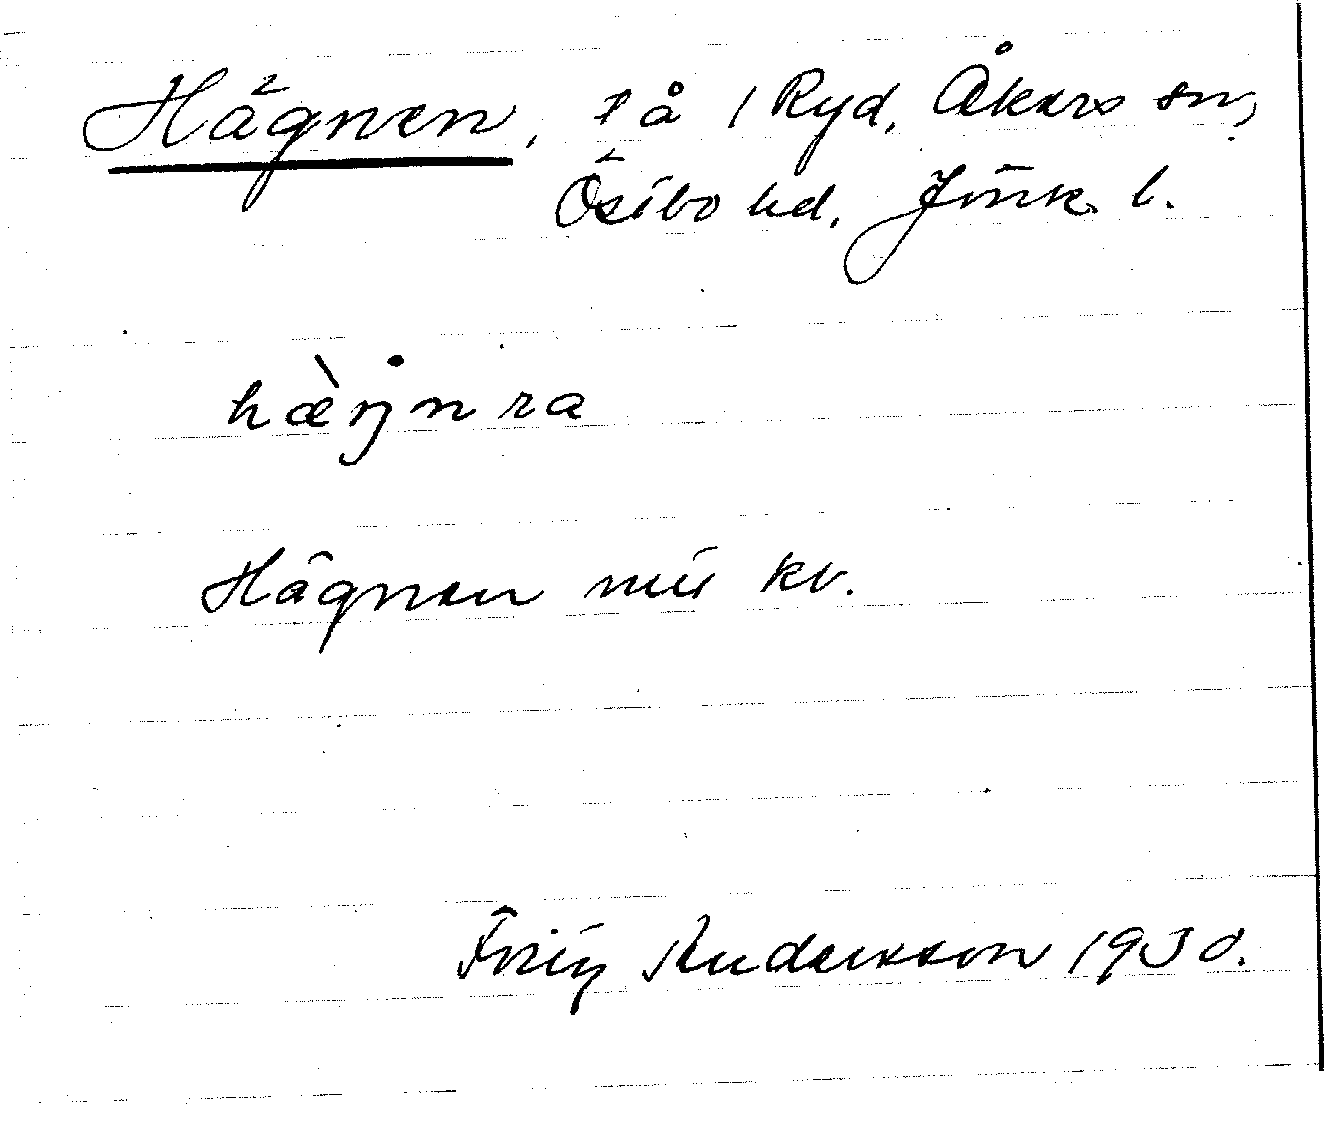 Hägnen, på 1 Ryd, Åkers sn,
Östbo hd, Jönk. l.
hæ̀ŋnra
Hägnen mit kv.
Fritz Andersson 1930.